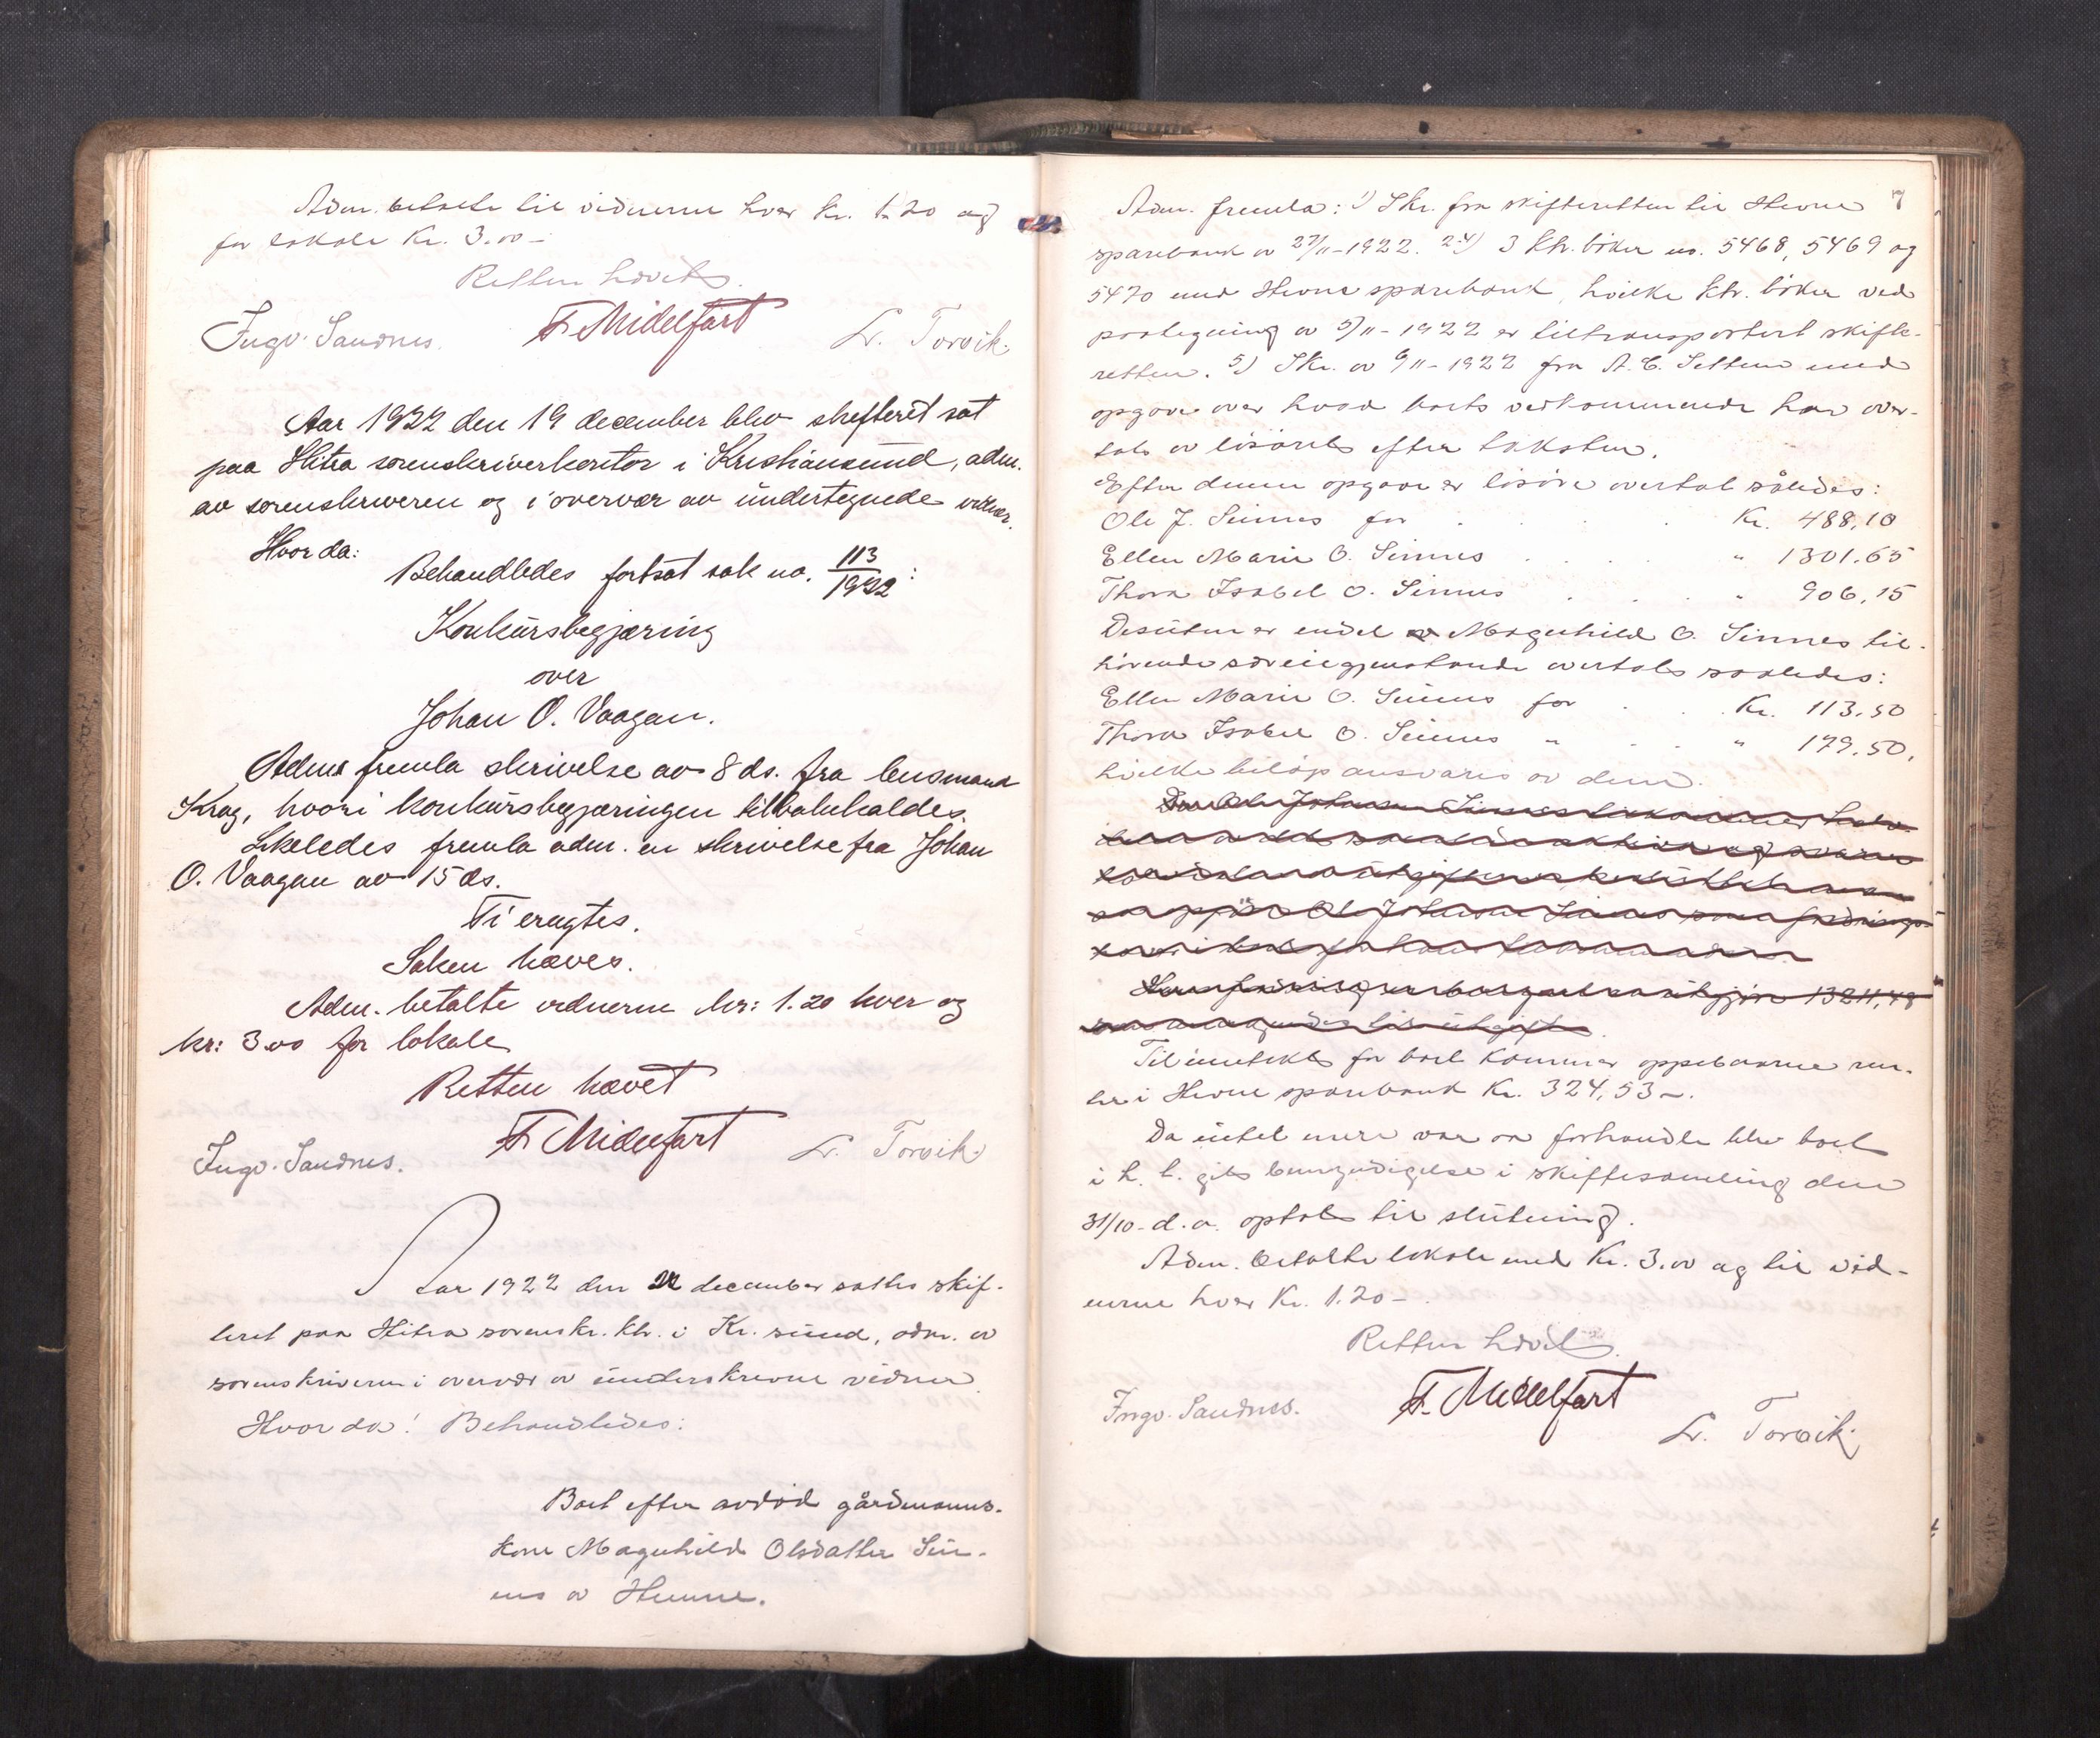 Adm. betalte til vidnerne hver kr. 1.20 og
for lokale kr. 3.00 –
Retten hævet.
Ingv. Sandnes. F. Midelfart L. Torvik.
Aar 1922 den 19 december blev skifteret sat
paa Hitra sorenskriverkontor i Kristiansund, adm.
av sorenskriveren og i overvær av undertegnede vidner.
Hvor da:
Behandledes fortsat sak no. 113/1922:
Konkursbegjæring
over
Johan O. Vaagan.
Adm. fremla skrivelse av 8 ds. fra lensmand
Krag, hvori konkursbegjæringen tilbakekaldes.
Likeledes fremla adm. en skrivelse fra Johan
O. Vaagan av 15 ds.
Ti eragtes.
Saken hæves.
Adm. betalte vidnerne kr: 1.20 hver og
kr: 3.00 for lokale
Retten hævet
Ingv. Sandnes. F. Midelfart L. Torvik.
Aar 1922 den 22 december sattes skif-
teret paa Hitra sorenskr. ktr. i Kr. sund, adm. av
sorenskriveren i overvær av underskrevne vidner
Hvor da! Behandledes:
Boet efter avdød gårdmanns-
kone Magnhild Olsdatter Sin-
nes av Hemne.
7
Adm. fremla: 1) Skr. fra skifteretten til Hevne
sparebank av 27/11-1922. 2-4) 3 ktr. bøker no. 5468, 5469 og
5470 med Hevne sparebank, hvilke ktr. bøker ved
paategning av 5/11-1922 er tiltransportert skifte-
retten. 5) Skr. av 9/11-1922 fra A. C. Settem med
opgave over hvad boets vedkommende har over-
tat av løsøret efter taksten.
Efter denne opgave er løsøre overtat således:
Ole J. Sinnes for . . . Kr. 488,10
Ellen Marie O. Sinnes . . . " 1301.65
Thora Isabel O. Sinnes . . . " 906,15
Desuten er endel Magnhild O. Sinnes til-
hørende særeiegjenstande overtat saaledes:
Ellen Marie O. Sinnes for . . Kr. 113.50
Thora Isabel O. Sinnes " . . " 179.50,
hvilke beløp ansvares av dem.
Ole Johansen Sinnes
Ole Johansen Sinnes
13211,48
Til inntekt for boet kommer oppebaarne ren-
ter i Hevne sparebank Kr. 324,53 –.
Da intet mere var at forhandle blev boet
i h. t. gitt bemyndigelse i skiftesamling den
31/10- d. a. optat til slutning.
Adm. betalte lokale med Kr. 3.00 og til vid-
nerne hver Kr. 1.20 –.
Retten hævet.
Ingv. Sandnes. F. Midelfart
L. Torvik.